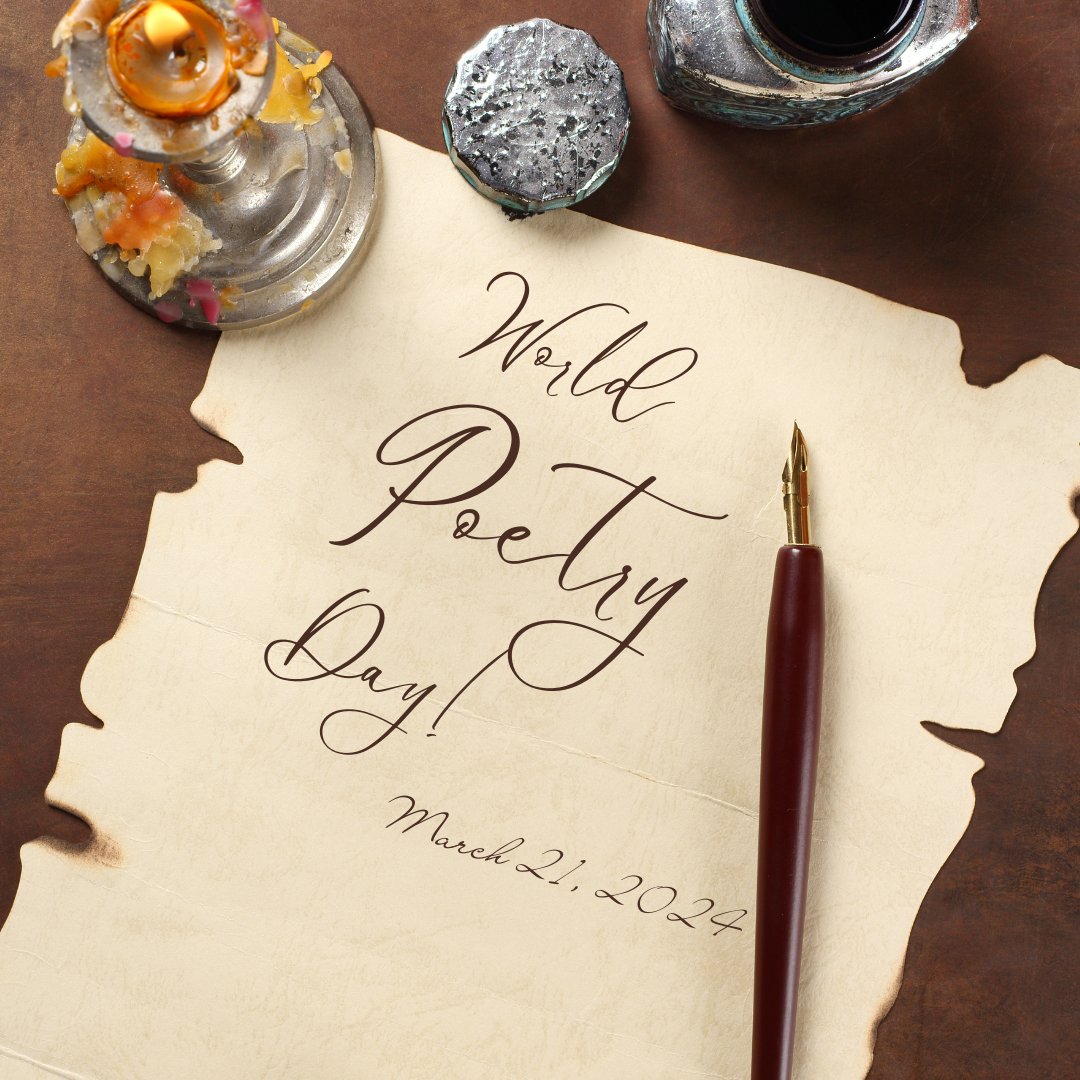 World
Poetry
Day!
March 21, 2024